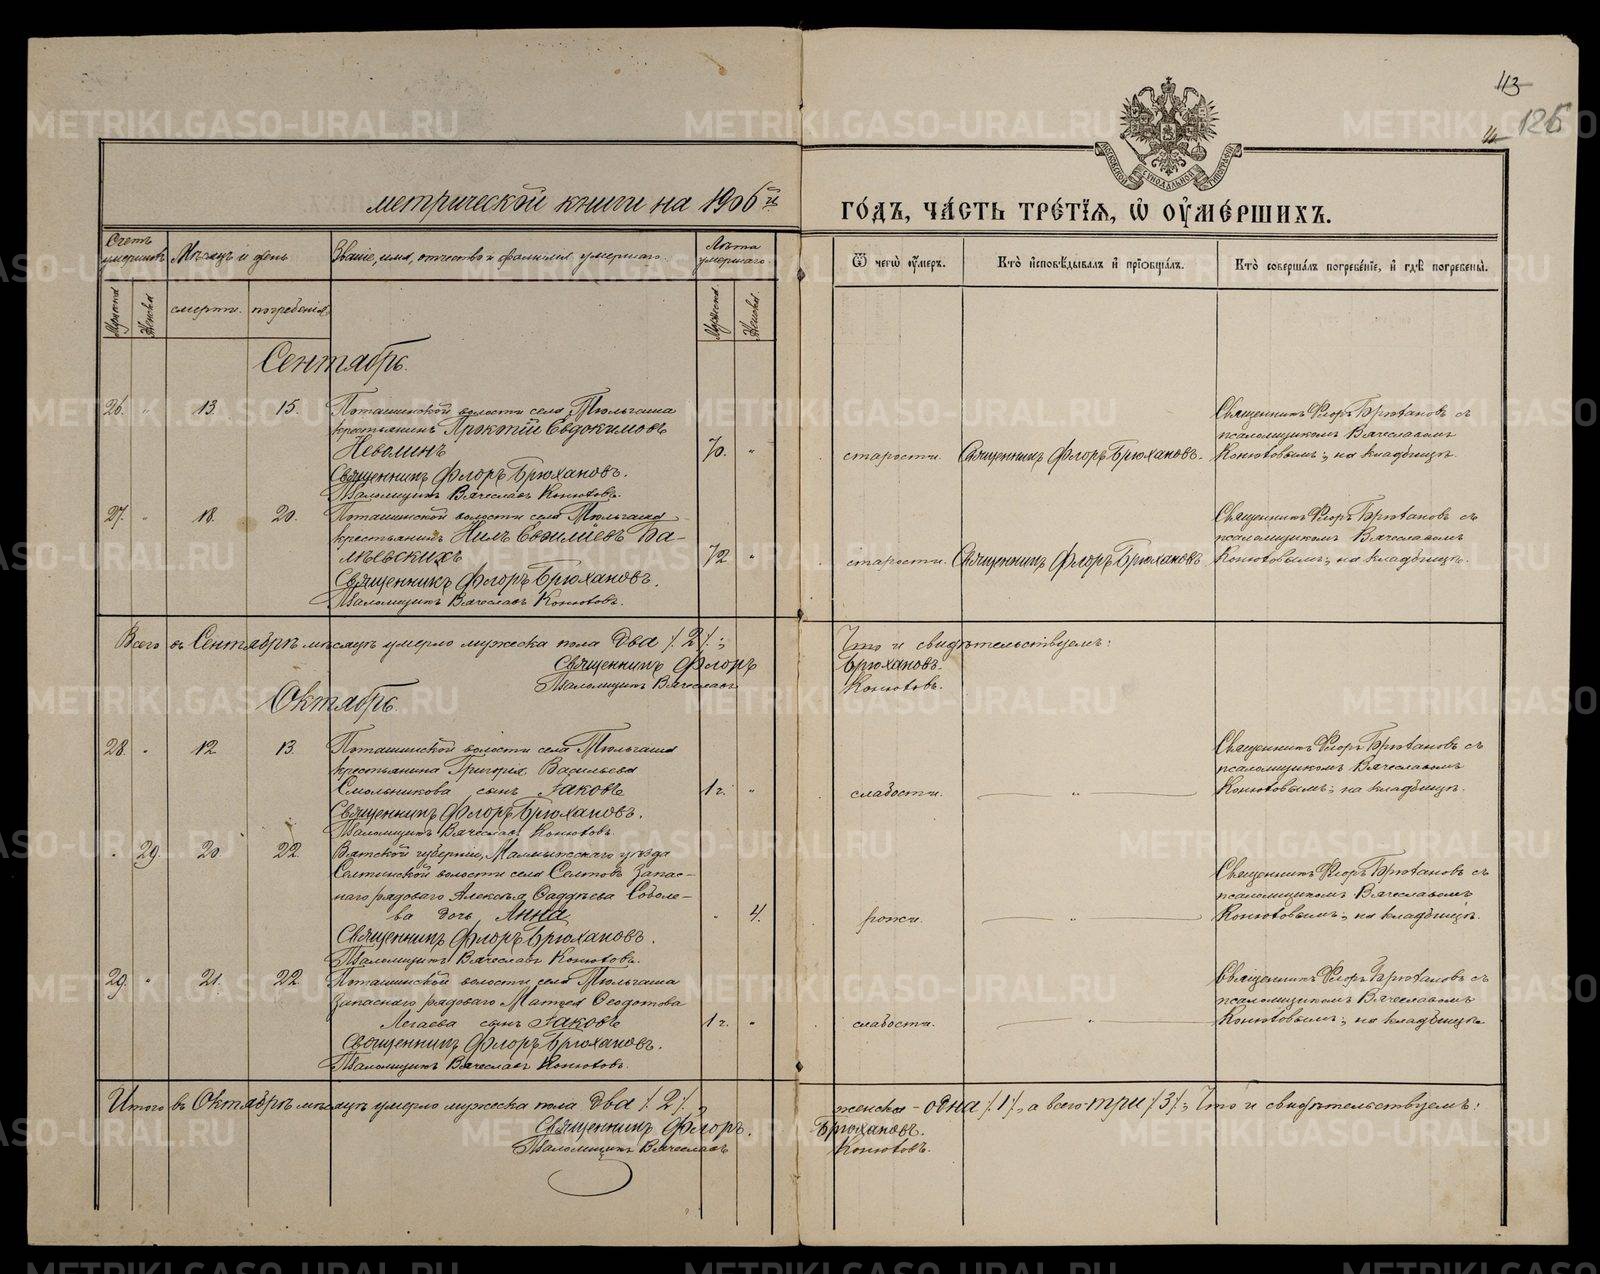 43
126
метрической книги на 1906й
го́дъ, ча́сть тре́тїѧ, ѡ҆ ᲂу҆ме́ршихъ.
Счетъ умершихъ
Мѣсяцъ и день
Званіе, имя, отчество и фамилія умершаго.
Лѣта умершаго
Ѿ чегѡ̀ ᲂу҆́меръ.
Кто̀ и҆сповѣ́дывалъ и҆ прїѡбща́лъ.
Кто̀ соверша́лъ погребе́нїе, и҆ гдѣ̀ погребены̀.
Мужска
Женска
смерти.
погребенія
Мужска.
Женска.
Сентябрь.
26. " 13. 15. Поташинской волости села Тюльгаша
крестьянинъ Прокпій Евдокимовъ
Неволинъ 70. "
Священникъ Флоръ Брюхановъ.
Псаломщикъ Вячеславъ Конютовъ.
старости. Священникъ Флоръ Брюхановъ.
Священникъ Флоръ Брюхановъ съ
псаломщикомъ Вячеславомъ
Конютовымъ; на кладбищѣ.
27. " 18. 20. Поташинской волости села Тюльгаша
крестьянинъ Нилъ
72 "
Священникъ Флоръ Брюхановъ.
Псаломщикъ Вячеславъ Конютовъ.
старости. Священникъ Флоръ Брюхановъ
Священникъ Флоръ Брюхановъ съ
псаломщикомъ Вячеславомъ
Конютовымъ; на кладбищѣ.
Всего въ Сентябрѣ мѣсяцѣ умерло мужеска пола два /.2/.;
Что и свидѣтельствуемъ:
Священникъ Флоръ
Брюхановъ.
Псаломщикъ Вячеславъ
Конютовъ.
Октябрь.
28. " 12. 13. Поташинской волости села Тюльгаша
крестьянина Григорія Васильева
Смольникова сынъ Іаковъ 1 г. "
Священникъ Флоръ Брюхановъ.
Псаломщикъ Вячеславъ Конютовъ.
слабости. "
Священникъ Флоръ Брюхановъ съ
псаломщикомъ Вячеславомъ
Конютовымъ; на кладбищѣ.
" 29. 20. 22. Вятской губерніи, Малмыжскаго уѣзда
Селтинской волости села Селтовъ запас-
наго рядоваго Алексѣя Фаддѣева Соболе-
ва дочь Анна " 4.
Священникъ Флоръ Брюхановъ.
Псаломщикъ Вячеславъ Конютовъ.
рожи. "
Священникъ Флоръ Брюхановъ съ
псаломщикомъ Вячеславомъ
Конютовымъ; на кладбищѣ.
29. " 21. 22. Поташинской волости села Тюльгаша
запаснаго рядоваго Матѳея Ѳеодотова
Легаева сынъ Іаковъ 1 г. "
Священникъ Флоръ Брюхановъ.
Псаломщикъ Вячеславъ Конютовъ.
слабости. "
Священникъ Флоръ Брюхановъ съ
псаломщикомъ Вячеславомъ
Конютовымъ; на кладбищѣ
Итого въ Октябрѣ мѣсяцѣ умерло мужеска пола два /.2/.
женска - одна /.1/., а всего три /.3/.; Что и свидѣтельствуемъ:
Священникъ Флоръ.
Брюхановъ.
Псаломщикъ Вячеславъ
Конютовъ.
METRIKI.GASO-URAL.RU